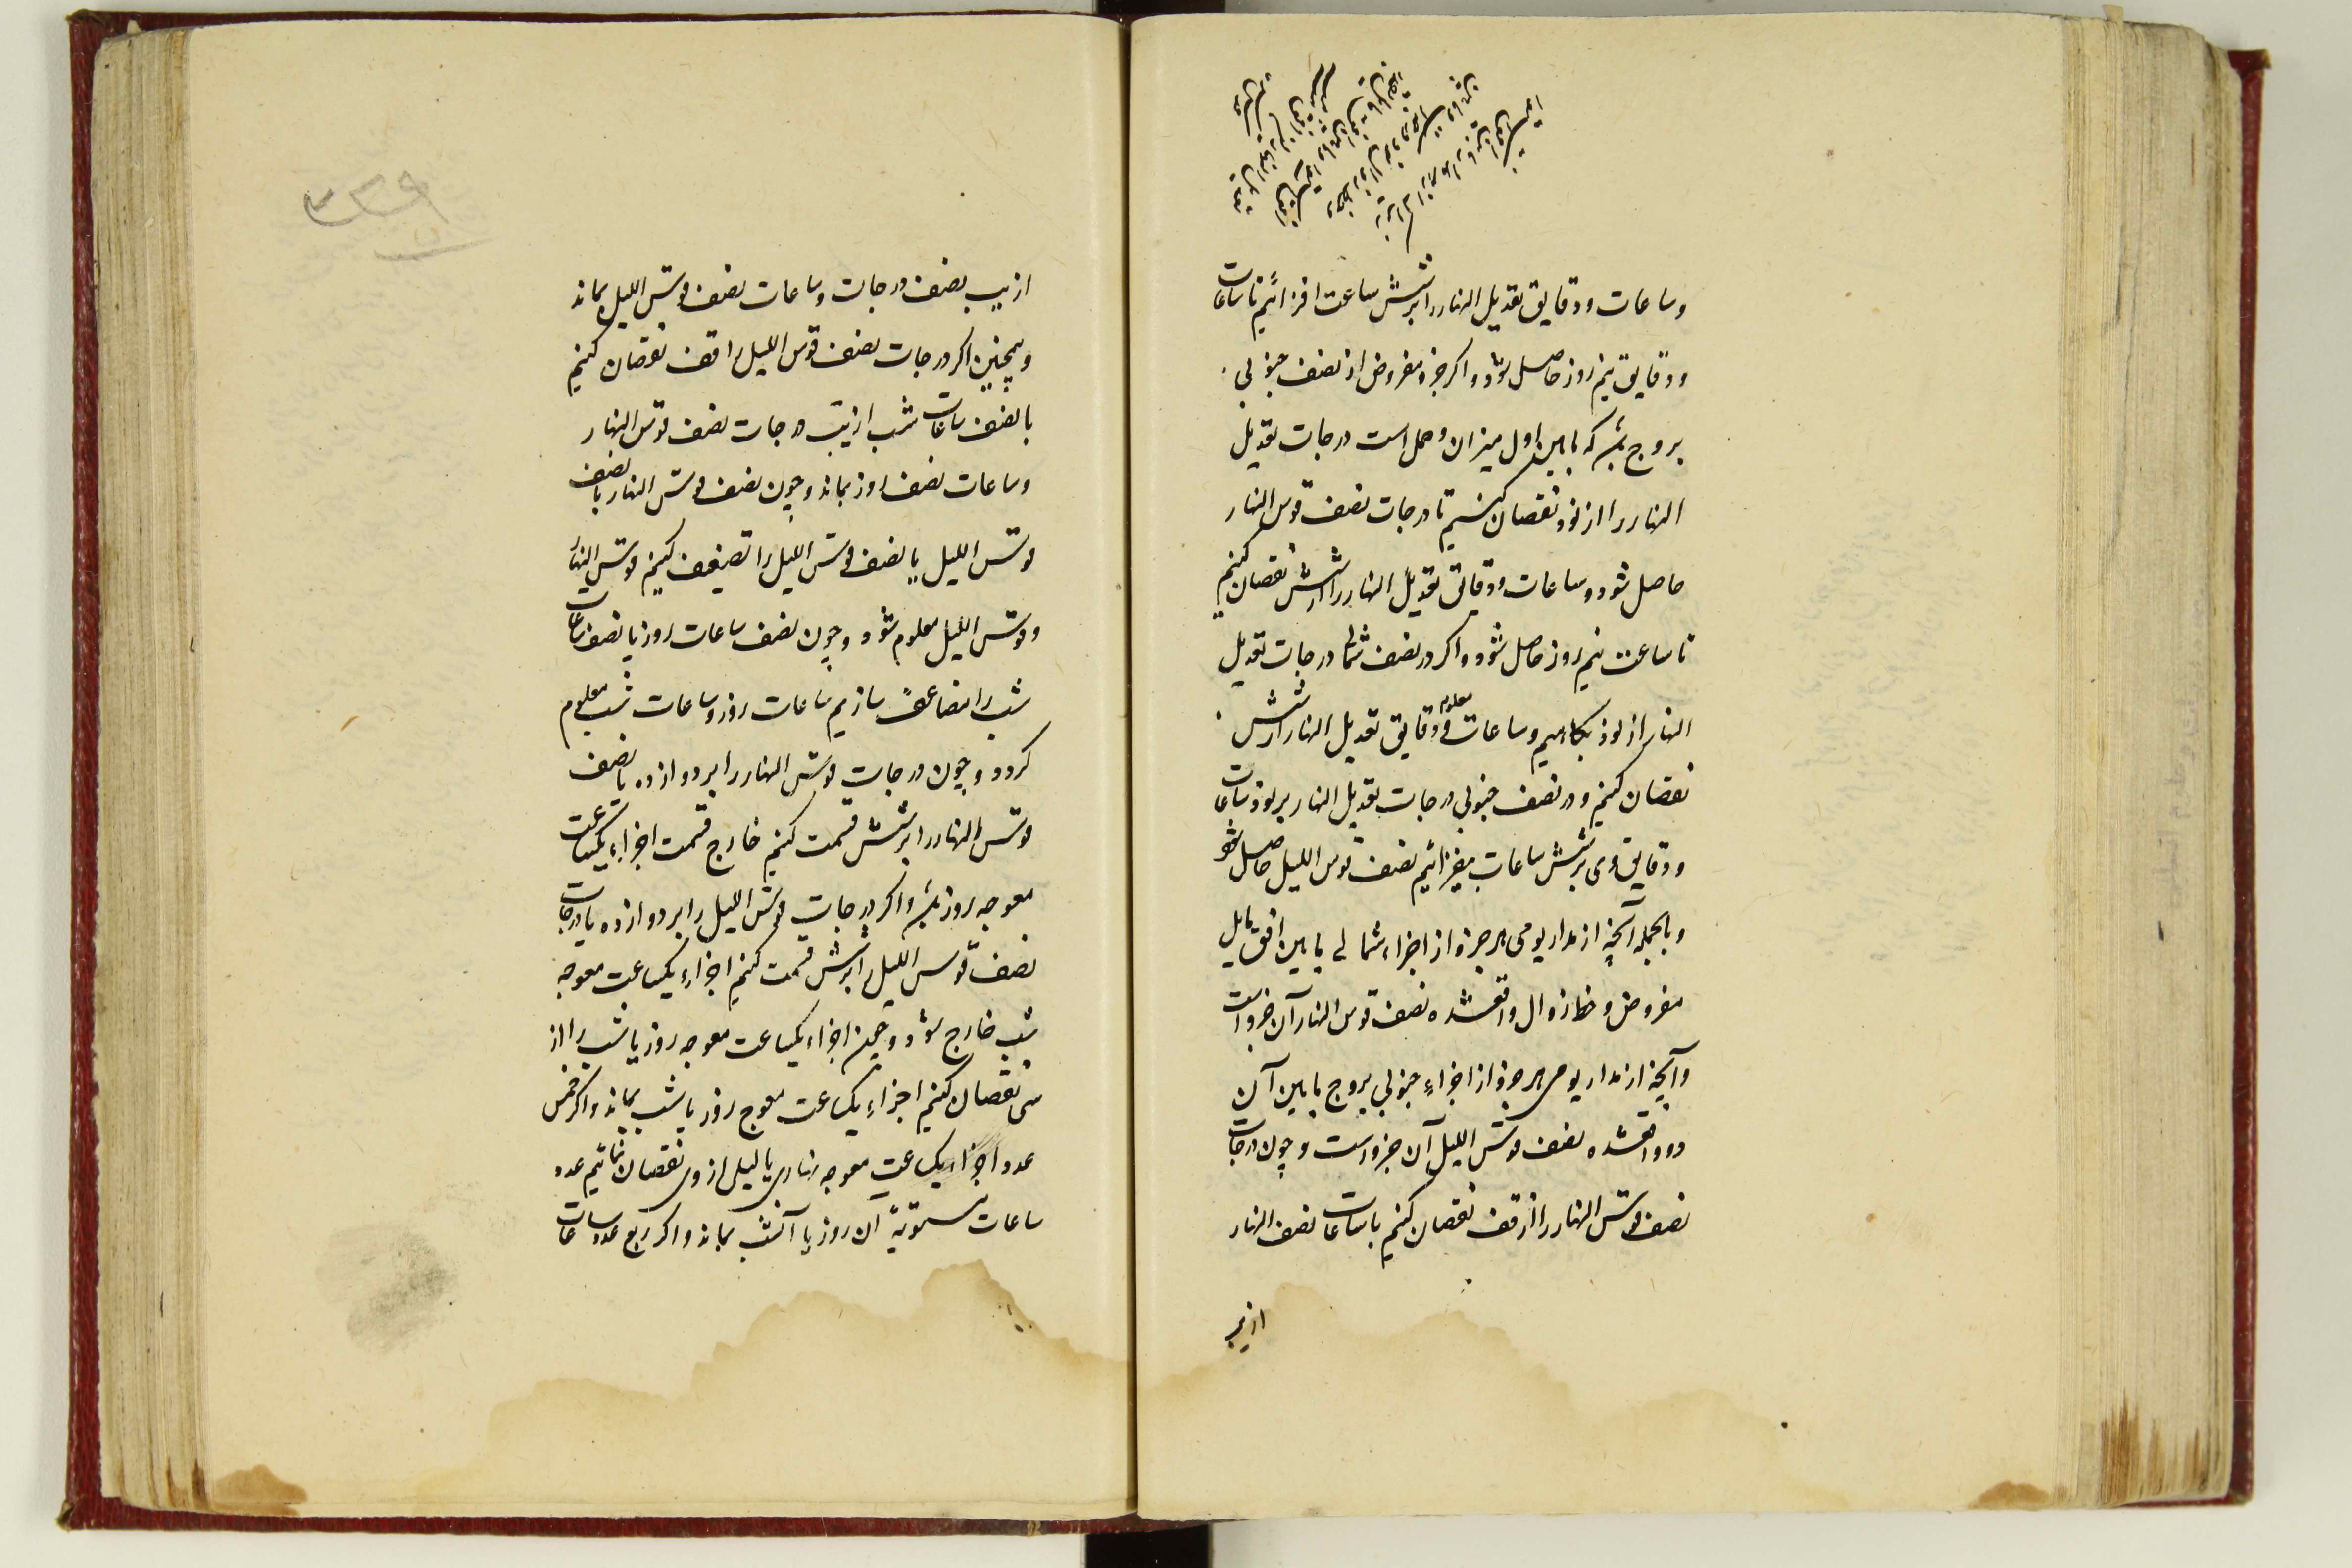 وساعات و دقایق تعدیل النهار را بر شش ساعت افزائیم تا ساعات
و دقایق نیم روز حاصل شود و اکر جزو مفروض از نصف جنوبی
بروج باشد که مابین اول میزان و حمل است درجات تعدیل
النهار را از نود نقصان کنیم تا درجات نصف قوس النهار
حاصل شود و ساعات و دقائق تعدیل النهار را از شش نقصان کنیم
تا ساعت نیم روز حاصل شود و اکر در نصف شمالی درجات تعدیل
النهار از نود بکاهیم و ساعات و دقایق معلوم تعدیل النهار از شش
نقصان کنیم و در نصف جنوبی درجات تعدیل النهار بر نود و ساعات
و دقایق وی بر شش ساعات بیفزائیم نصف قوس اللیل حاصل شود
و بالجمله آنچه از مدار یومی هر جزو از اجزاء شمالی مابین افق مایل
مفروض و خط زوال واقع شده نصف قوس النهار آن جزو است
و آنچه از مدار یومی هر جزو از اجزاء جنوبی بروج مابین آن
دو واقع شده نصف قوس اللیل آن جزو است و چون درجات
نصف قوس النهار را از قف نقصان کنیم یا ساعات نصف النهار
از یب
۳۲۹
از یب نصف درجات و ساعات نصف قوس اللیل بماند
و همچنین اکر درجات نصف قوس اللیل را از قف نقصان کنیم
یا نصف ساعات شب از یب درجات نصف قوس النهار
و ساعات نصف روز بماند و چون نصف قوس النهار یا نصف
قوس اللیل یا نصف قوس اللیل را تضعیف کنیم قوس النهار
و قوس اللیل معلوم شود و چون نصف ساعات روز یا نصف ساعات
شب را مضاعف سازیم ساعات روز و ساعات شب معلوم
کردد و چون درجات قوس النهار را بر دوازده یا نصف
قوس النهار را بر شش قسمت کنیم خارج قسمت اجزاء یکساعت
معوجه روز باشد و اکر درجات قوس اللیل را بر دوازده یا درجات
نصف قوس اللیل را بر شش قسمت کنیم اجزاء یکساعت معوجه
شب خارج شود و چون اجزاء یکساعت معوجه روز یا شب را از
سی نقصان کنیم اجزاء یکساعت معوج روز یا شب بماند و اکر خمس
عدد اجزاء یکساعت معوجه نهاری یا لیلی از وی نقصان نمائیم عدد
ساعات مستویة آن روز یا آنشب بماند و اکر ربع عدد ساعات